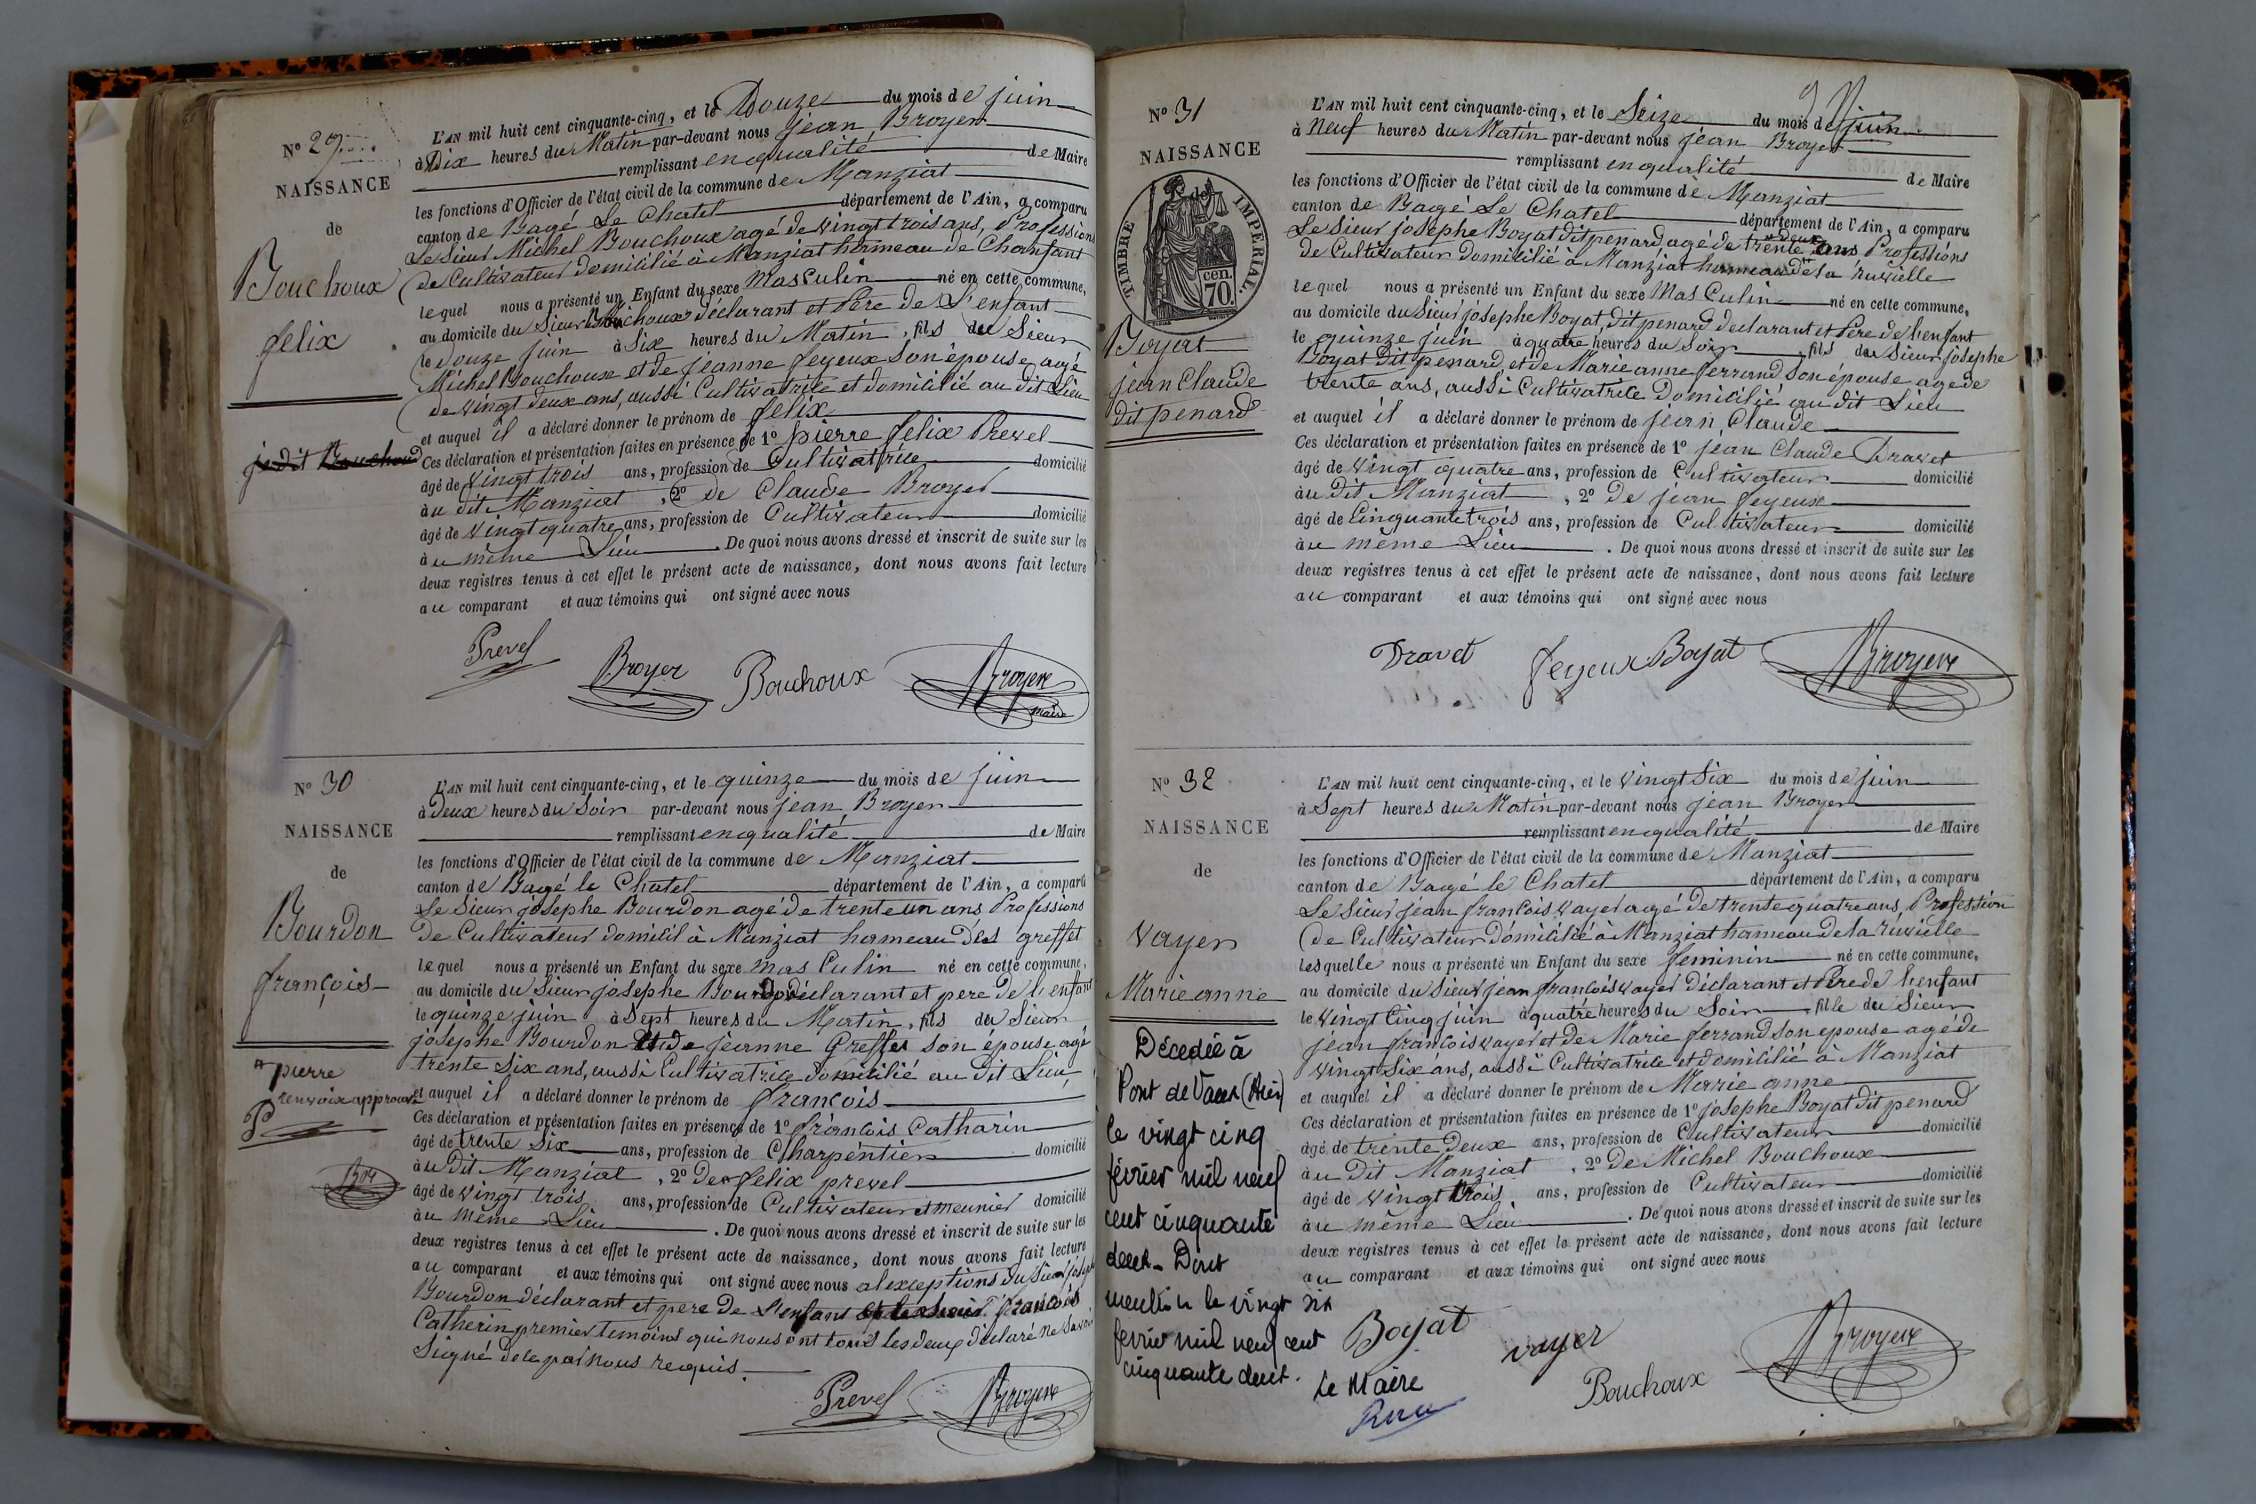 N° 29
NAISSANCE
de
Bouchoux
felix
L'AN mil huit cent cinquante-cinq, et le Douze du mois de juin
à Dix heures du Matin par-devant nous jean Broyer
remplissant en qualité de Maire
les fonctions d'Officier de l'état civil de la commune de Manziat
canton de Bagé Le Chatel département de l'Ain, a comparu
Le Sieur Michel Bouchoux agé de vingt trois ans, Profession
de Cultivateur domicilié à Manziat hameau de Chanfant
lequel nous a présenté un Enfant du sexe Masculin né en cette commune,
au domicile du Sieur Bouchoux déclarant et Père de L'enfant
le douze juin à Six heures du Matin, fils du Sieur
Michel Bouchoux et de jeanne feyeux Son épouse agé
de vingt deux ans, aussi Cultivatrice et domicilié au dit Lieu
et auquel il a déclaré donner le prénom de felix
Ces déclaration et présentation faites en présence de 1° pierre felix Prevel
âgé de vingt trois ans, profession de Cultivatrice domicilié
au dit Manziat, 2° de Claude Broyer
âgé de vingt quatre ans, profession de Cultivateur domicilié
au même Lieu. De quoi nous avons dressé et inscrit de suite sur les
deux registres tenus à cet effet le présent acte de naissance, dont nous avons fait lecture
au comparant et aux témoins qui ont signé avec nous
Prevel Broyer Bouchoux Broyer
maire
N° 30
NAISSANCE
de
Bourdon
françois
pierre
renvoix approuvé
P
L'AN mil huit cent cinquante-cinq, et le quinze du mois de juin
à Deux heures du Soir par-devant nous jean Broyer
remplissant en qualité de Maire
les fonctions d'Officier de l'état civil de la commune de Manziat
canton de Bagé le Chatel département de l'Ain, a comparu
Le Sieur josephe Bourdon agé de trente un ans Professions
de Cultivateur domicilié à Manziat hameau des greffet
lequel nous a présenté un Enfant du sexe masculin né en cette commune,
au domicile du Sieur josephe Bourdon déclarant et pere de l'enfant
le quinze juin à Sept heures du Matin, fils du Sieur
josephe Bourdon et de jeanne Greffet son épouse agé
trente Six ans, aussi Cultivatrice domicilié au dit Lieu
et auquel il a déclaré donner le prénom de françois
Ces déclaration et présentation faites en présence de 1° françois Catharin
âgé de trente Six ans, profession de Charpentier domicilié
au dit Manziat, 2° de felix prevel
âgé de vingt trois ans, profession de Cultivateur et meunier domicilié
au même Lieu. De quoi nous avons dressé et inscrit de suite sur les
deux registres tenus à cet effet le présent acte de naissance, dont nous avons fait lecture
au comparant et aux témoins qui ont signé avec nous al exceptions du Sieur joseph
Bourdon déclarant et pere de L'enfant françois
Catherin premier temoins qui nous ont tous les deux déclaré ne savoir
Signé de ce par nous requis.
Prevel Broyer
N° 31
NAISSANCE
de
TIMBRE IMPÉRIAL.
70 cen.
Boyat
jean Claude
dit penard
L'AN mil huit cent cinquante-cinq, et le Seize du mois de juin
à Neuf heures du Matin par-devant nous jean Broyer
remplissant en qualité de Maire
les fonctions d'Officier de l'état civil de la commune de Manziat
canton de Bagé Le Chatel département de l'Ain, a comparu
Le Sieur josephe Boyat dit penard agé de trente deux ans Professions
de Cultivateur Domicilié à Manziat hameau de la ruzielle
lequel nous a présenté un Enfant du sexe Masculin né en cette commune,
au domicile du Sieur josephe Boyat, dit penard déclarant et Père de lenfant
le quinze juin à quatre heures du Soir fils du Sieur josephe
Boyat dit penard, et de Marie anne ferrand Son épouse age de
trente ans, aussi Cultivatrice Domicilié au dit Lieu
et auquel il a déclaré donner le prénom de jean Claude
Ces déclaration et présentation faites en présence de 1° jean Claude Dravet
âgé de vingt quatre ans, profession de Cultivateur domicilié
au Dit Manziat, 2° de jean feyeux
âgé de Cinquante trois ans, profession de Cultivateur domicilié
au même Lieu. De quoi nous avons dressé et inscrit de suite sur les
deux registres tenus à cet effet le présent acte de naissance, dont nous avons fait lecture
au comparant et aux témoins qui ont signé avec nous
Dravet feyeux Boyat Broyer
N° 32
NAISSANCE
de
vayer
Marie anne
Décédée à
Pont de Vaux (Ain)
le vingt cinq
février mil neuf
cent cinquante
deux. Dont
mention le vingt six
fevrier mil neuf cent
cinquante deux.
Le Maire
L'AN mil huit cent cinquante-cinq, et le vingt Six du mois de juin
à Sept heures du Matin par-devant nous jean Broyer
remplissant en qualité de Maire
les fonctions d'Officier de l'état civil de la commune de Manziat
canton de Bagé le Chatel département de l'Ain, a comparu
Le Sieur jean francois vayer agé de trente quatre ans, Profession
de Cultivateur domicilié à Manziat hameau de la ruzielle
lesquelle nous a présenté un Enfant du sexe feminin né en cette commune,
au domicile du Sieur jean francois vayer déclarant et Père de lenfant
le vingt Cinq juin à quatre heures du Soir fille du Sieur
jean francois vayer et de Marie ferrand son epouse agé de
vingt Six ans, aussi Cultivatrice et domicilié à Manziat
et auquel il a déclaré donner le prénom de Marie anne
Ces déclaration et présentation faites en présence de 1° josephe Boyat dit penard
âgé de trente Deux ans, profession de Cultivateur domicilié
au Dit Manziat, 2° de Michel Bouchoux
âgé de vingt trois ans, profession de Cultivateur domicilié
au même Lieu. De quoi nous avons dressé et inscrit de suite sur les
deux registres tenus à cet effet le présent acte de naissance, dont nous avons fait lecture
au comparant et aux témoins qui ont signé avec nous
Boyat vayer Bouchoux Broyer